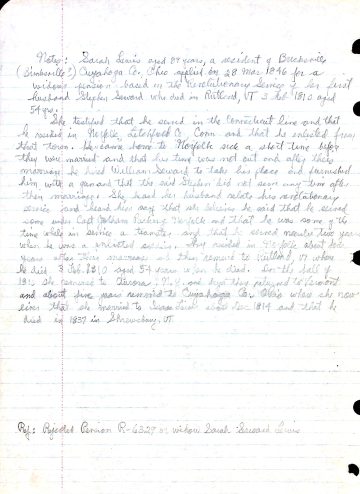 Notes: Sarah Lewis aged 89 years, a resident of Brecksville
( ) Cuyahoga Co, Ohio applied by 28 Mar 1846 for a
widows pension based on the Revolutionary Service of her first
husband Stephen Seward who died in Rutland, VT 3 Feb 1810 aged
54 yrs.
She testified that he served in the Connecticut line and that
he resided in Norfolk, Litchfield Co, Conn and that he enlisted from
that town. He came home to Norfolk sick a short time before
they were married and that his time was not out and after their
marriage he hired William Seward to take his place and furnished
him with a gun and that the said Stephen did not serve any time after
their marriage. She heard her husband relate his revolutionary
service and heard him say that he said that he served
some under Capt Norfolk and that he was some of the
time while in service a teamster and that he served
when he was a private soldier. They resided in Norfolk about
years after their marriage and then removed to Rutland, VT where
he died 3 Feb. 1810 aged 54 years when he died. In the fall of
she removed to , N.Y. and they returned to Vermont
and about five years removed to Cuyahoga Co, Ohio where she now
lives that she married to Lewis about 1814 and that he
died in 1837 in Shrewsbury, VT
Ref: Rejected Pension R-6329 or widow Sarah Seward Lewis